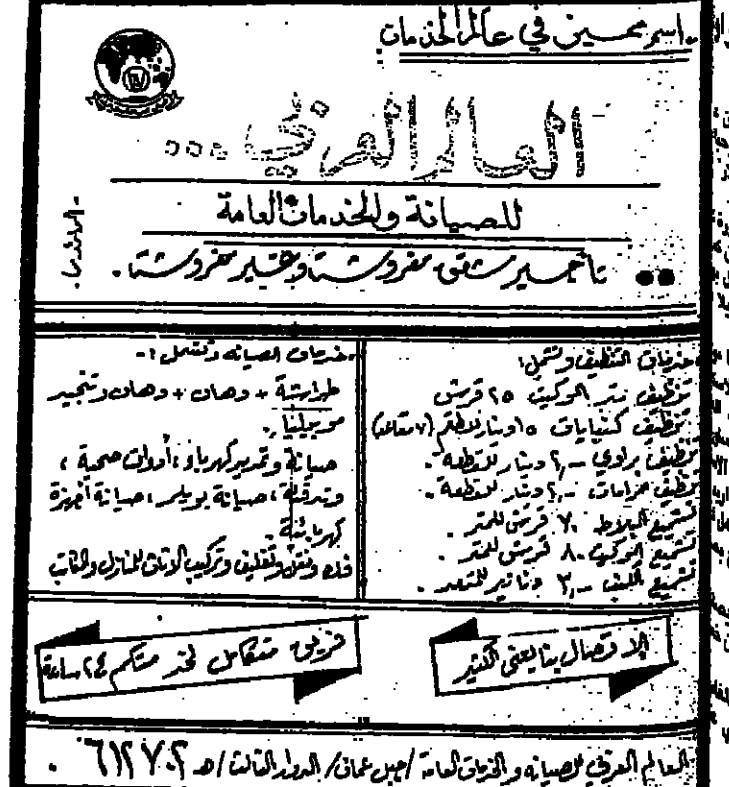 اسم مميز في عالم الخدمات
العالم العربي ...
للصيانة والخدمات العامة
تأجير شقق مفروشة وغير مفروشة .
خدمات التنظيف وتشمل :
تنظيف متر الموكيت ٢٥ قرش
تنظيف كنبايات ١٥ دينار للطقم (٧ مقاعد)
تنظيف برادي -٢ر دينار للقطعة .
تنظيف حرامات -٢ر دينار للقطعة .
تشميع البلاط ٧٠ قرش للمتر .
تشميع الموكيت ٨٠ قرش للمتر .
تشميع الكنب -ر٣ دنانير للمقعد .
خدمات الصيانه وتشمل :-
طراشة + دهان + دهان وتنجيد
موبيليا .
صيانة وتمديد كهرباء ، أدوات صحية ،
وتدفئة ، صيانة بويلر ، صيانة أجهزة
كهربائية .
فك ونقل وتغليف وتركيب الاثاث للمنازل والمكاتب
الاتصال بنا يعني الكثير
فريق متكامل لخدمتكم ٢٤ ساعة
العالم العربي للصيانه والخدمات العامة / جبل عمان / الدوار الثالث / هـ ٦١٢٧٠٢ .